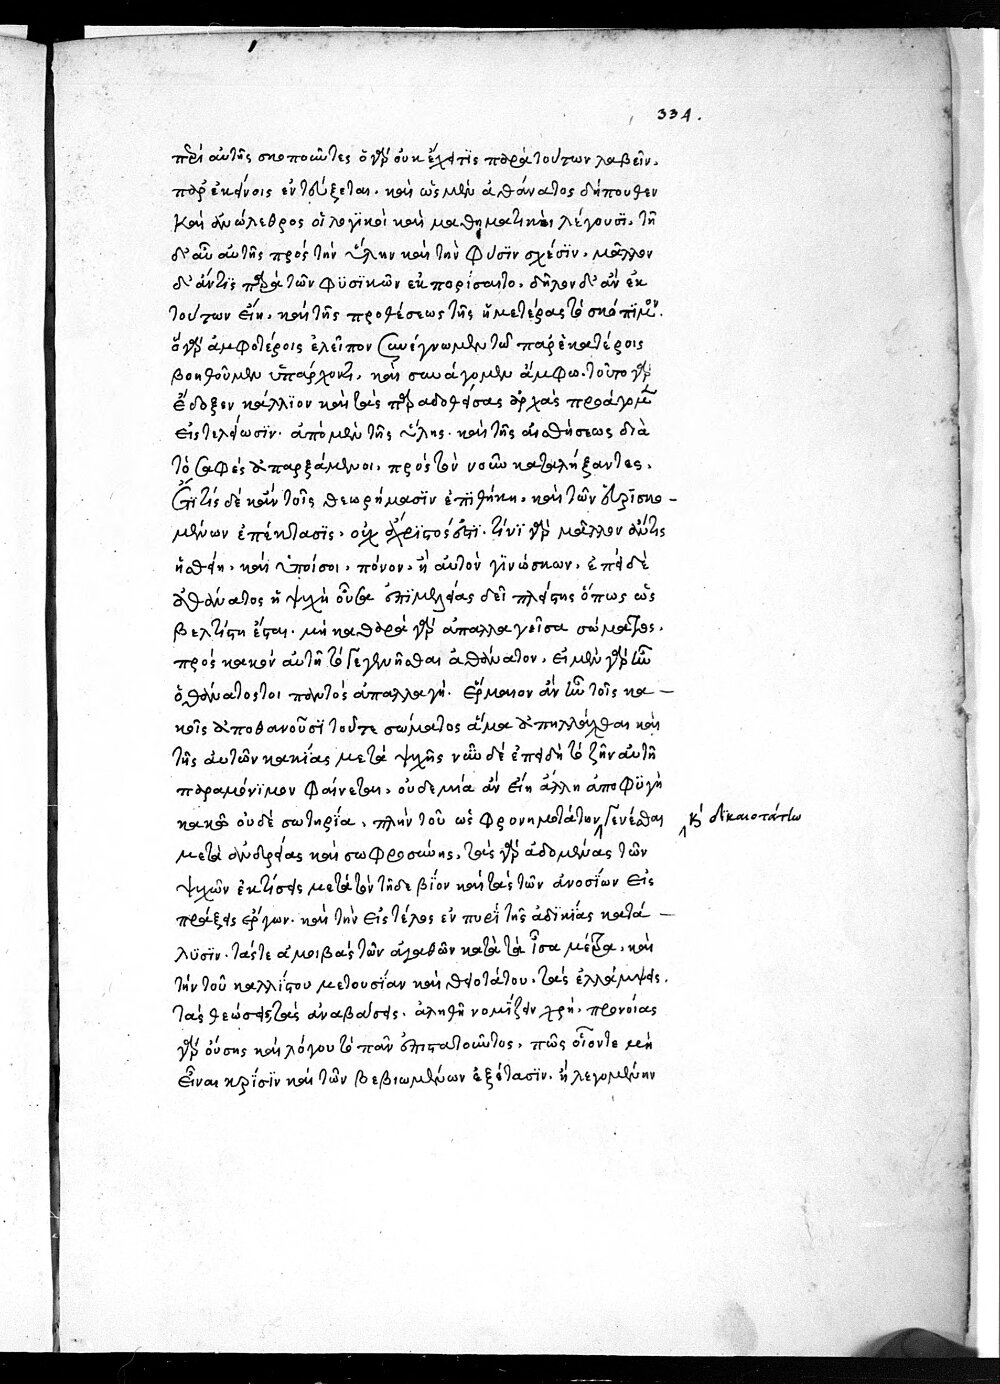 334.
περὶ αὐτῆς σκοποῦντες ὃ γὰρ οὐκ ἔχει τίς παρὰ τούτων λαβεῖν.
παρ' ἐκείνοις ἐντεύξεται. καὶ ὡς μὲν ἀθάνατος δήπουθεν
καὶ ἀνώλεθρος οἱ λογϊκοὶ καὶ μαθηματικοὶ λέγουσϊ. τὴ
δ' αὖ αὐτῆς πρὸς τὴν ὕλην καὶ τὴν φύσϊν σχέσϊν. μᾶλλον
δ' ἄν τϊς παρὰ τῶν φϋσϊκῶν ἐκπορίσαιτο. δῆλον δ' ἂν ἐκ
τούτων εἴη. καὶ τῆς προθέσεως τῆς ἡμετέρας τὸ σκόπϊμον.
ὃ γὰρ ἀμφοτέροις ἐλεῖπον συνέγνωμεν τῶ παρ' ἑκατέροις
βοηθοῦμεν ὑπάρχοντι. καὶ συνάγομεν ἄμφω. τοῦτο γὰρ
ἔδοξεν κάλλϊον καὶ τὰς παραδοθείσας ἀρχὰς προάγομεν
εἰς τελείωσϊν. ἀπὸ μὲν τῆς ὕλης. καὶ τῆς αἰσθήσεως διὰ
τὸ σαφὲς ἀπαρξάμενοι. πρὸς τὸν νοῦν καταλήξαντες.
Εἴ τίς δὲ κἂν τοῖς θεωρήμασϊν ἐπϊθήκη. καὶ τῶν εὑρϊσκο-
μένων ἐπέκτασϊς. οὐκ ἄχρϊστός ἐστϊ. τίνϊ γὰρ μᾶλλον ἄν τις
ἡσθείη. καὶ ὑποίσοι. πόνον. ἢ αὑτὸν γϊνώσκων. ἐπεὶ δὲ
ἀθάνατος ἡ ψυχὴ οὖσα ἐπϊμελείας δεῖ πλείστης ὅπως ὡς
βελτίστη ἔσται. μὴ καθαρᾶ γὰρ ἀπαλλαγεῖσα σώματος.
πρὸς κακὸν αὐτῆ τὸ γεγενῆσθαι ἀθάνατον. εἰ μὲν γὰρ ἦν
ὁ θάνατός τοι παντὸς ἀπαλλαγή. ἕρμαιον ἂν ἦν τοῖς κα-
κοῖς ἀποθανοῦσϊ τοῦτε σώματος ἅμα ἀπηλλάχθαι καὶ
τῆς αὐτῶν κακίας μετὰ ψυχῆς νῦν δὲ ἐπειδὴ τὸ ζῆν αὐτῆ
παραμόνϊμον φαίνεται. οὐδεμία ἂν εἴη ἄλλη ἀποφϋγὴ
κακῶν οὐδὲ σωτηρία. πλὴν τοῦ ὡς φρονημοτάτην γενέσθαι
κ(αὶ) δϊκαιοτάτην
μετὰ ἀνδρείας καὶ σωφροσύνης. τὰς γὰρ ἀδομένας τῶν
ψυχῶν ἐκτίσεις μετὰ τὸν τῆδε βίον καὶ τὰς τῶν ἀνοσίων εἰς
πράξεις ἔργων. καὶ τὴν εἰς τέλος ἐν πυρὶ τῆς ἀδϊκίας κατά-
λϋσϊν. τάς τε ἀμοιβὰς τῶν ἀγαθῶν κατὰ τὰ ἴσα μέτρα. καὶ
τὴν τοῦ καλλίστου μετουσίαν καὶ θειοτάτου. τὰς ἐλλάμψεις.
τὰς θεώσεις τὰς ἀναβάσεις. ἀληθῆ νομίζειν χρή. προνοίας
γὰρ οὔσης καὶ λόγου τὸ πᾶν ἐπιστατοῦντος. πῶς οἷόν τε μὴ
εἶναι κρίσϊν καὶ τῶν βεβιωμένων ἐξέτασϊν. ἡ λεγομένην